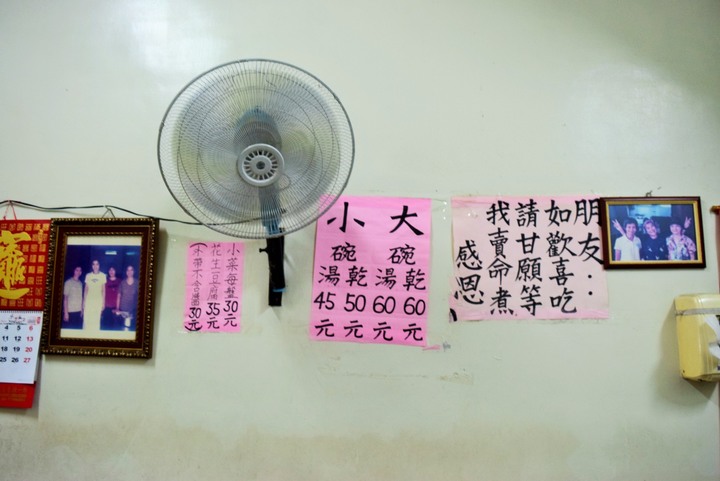 朋友：
如歡喜吃
請甘願等
我賣命煮
感恩
大碗
乾60元
湯60元
小碗
乾50元
湯45元
小菜每盤30元
花生豆腐35元
30元
4 5 6
11 12 13
18 19 20
25 26 27